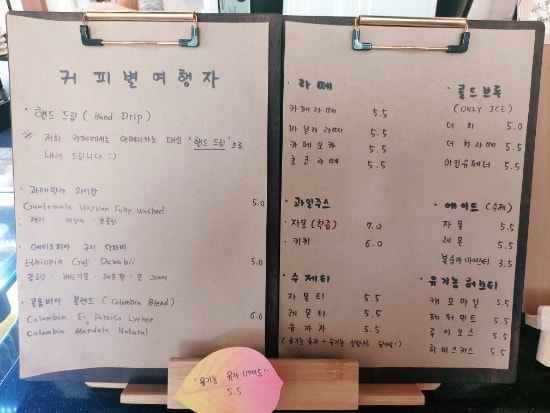 커피별여행자
· 핸드 드립 ( Hand Drip )
※ 저희 카페에서는 아메리카노 대신 "핸드 드립"으로
내려 드립니다 :)
· 과테말라 와이칸
Guatemala Waykan Fully Washed 5.0
· 에티오피아 구지
Ethiopia Guji 5.0
· 콜롬비아 블렌드 ( Colombia Blend )
Colombia El Paraiso Lychee 6.0
+
Colombia Natural
· 라떼
카페라떼 5.5
바닐라라떼 5.5
카페모카 5.5
초코라떼 5.5
· 과일주스
· 자몽 (착즙) 7.0
· 키위 6.0
· 수제티
자몽티 5.5
레몬티 5.5
유자차 5.5
· 콜드브루
(ONLY ICE)
더치 5.0
더치라떼 5.5
아인슈페너 5.5
· 에이드 (수제)
자몽 5.5
레몬 5.5
복숭아아이스티 3.5
· 유기농 허브티
캐모마일 5.5
페퍼민트 5.5
루이보스 5.5
히비스커스 5.5
"유기농 유자 에이드"
5.5